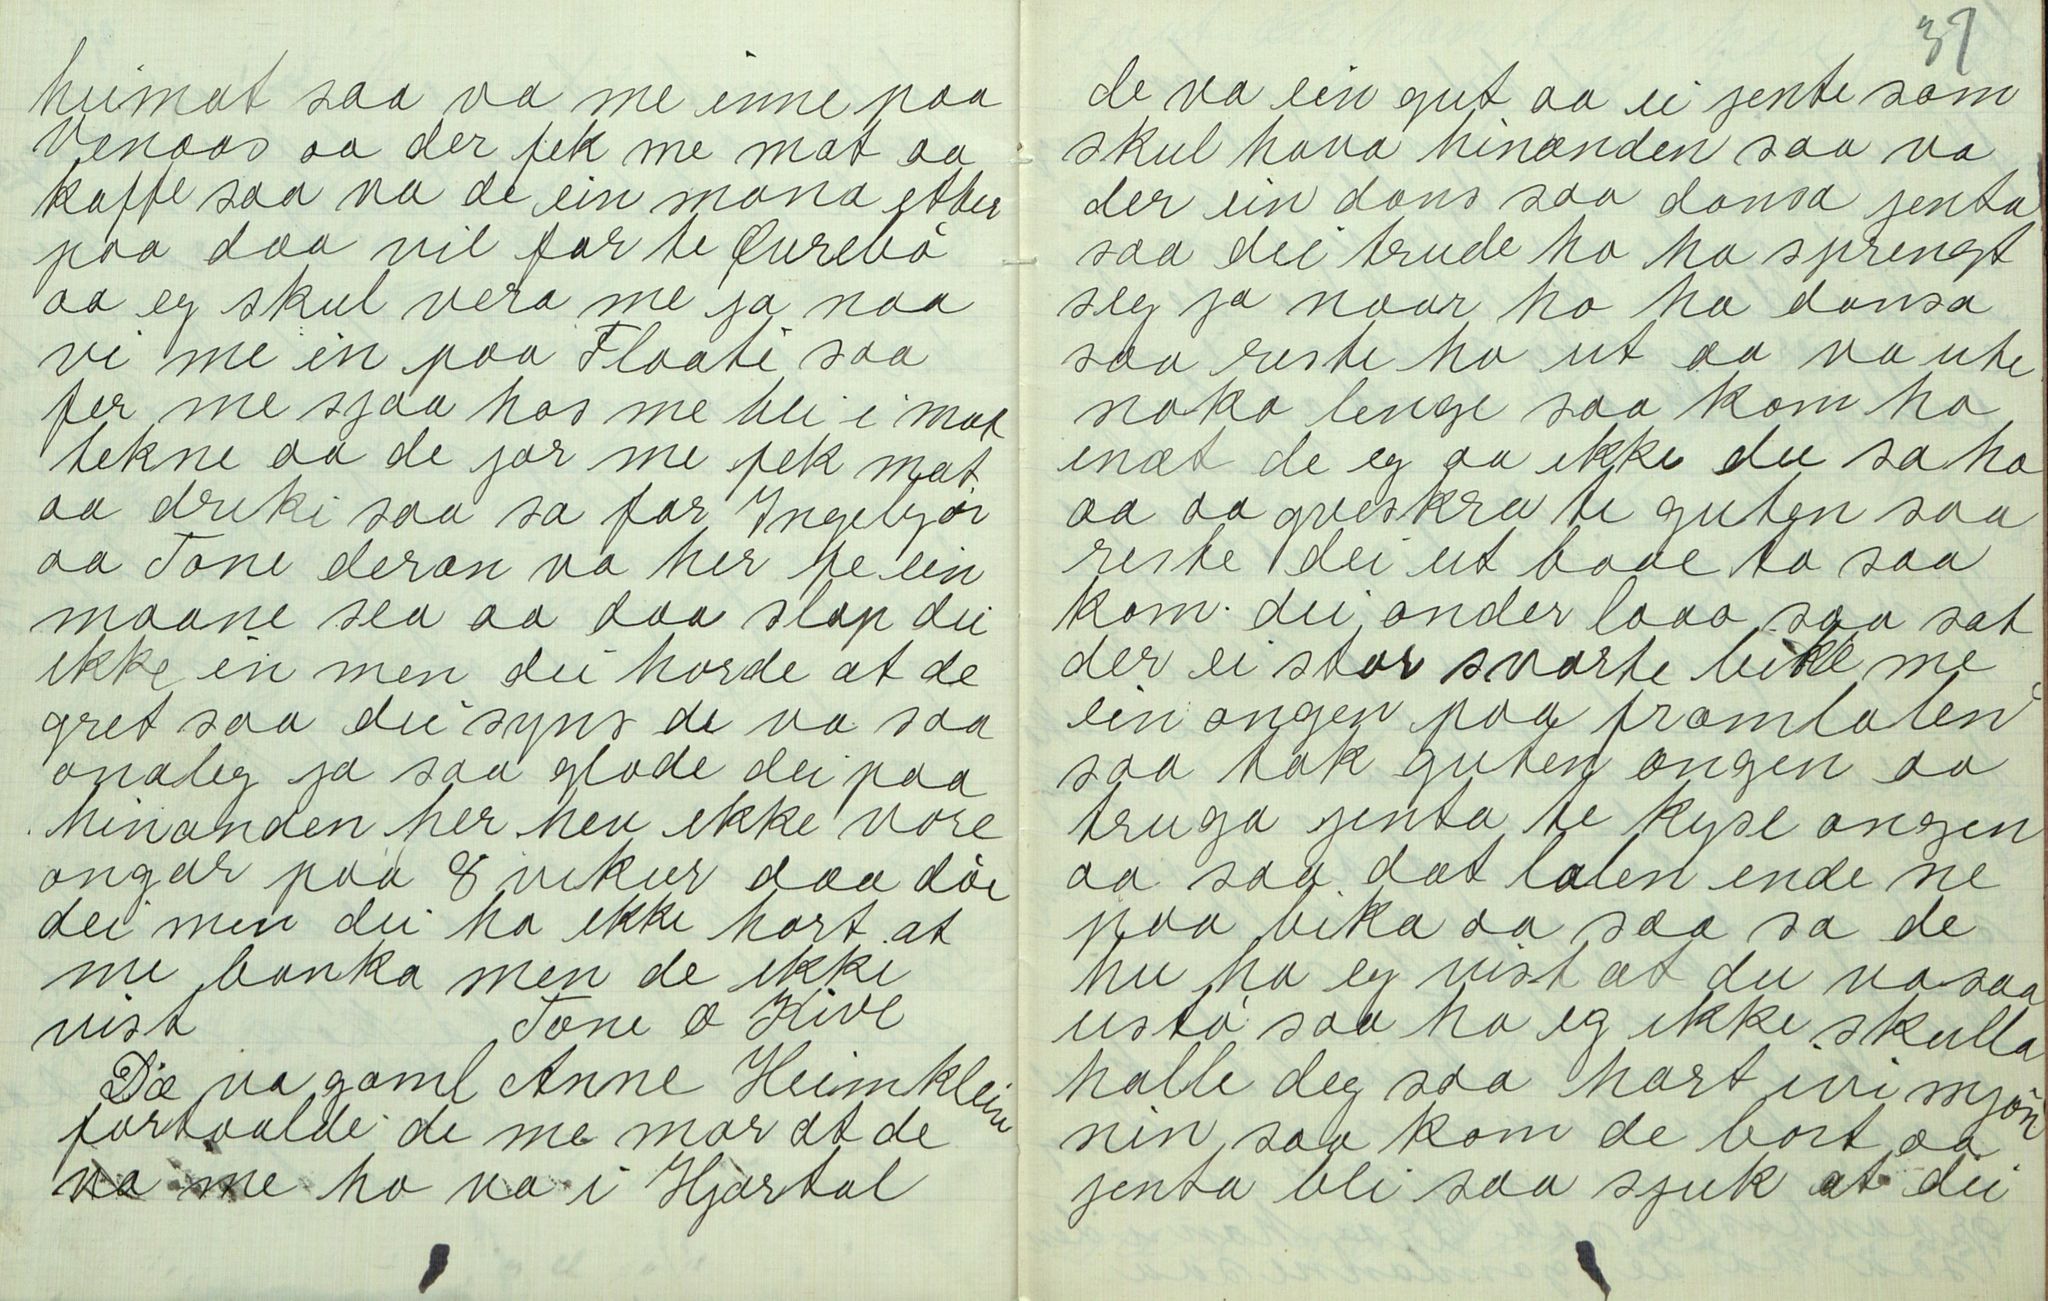 heimat saa va me inne paa
Venaas aa der fek me mat aa
kaffe saa va de ein mana etter
paa daa vil far te Øurebö
aa eg skul vera me ja naa
vi me in paa Flaati saa
fer me sjaa hos me bli i mot
tekne aa de jor me fek mat
aa drikke saa sa far Ingebjör
aa Tone deran va her fe ein
maane sea aa daa slap dei
ikke in men dei horde at de
gret saa dei syns de va saa
onaleg ja saa glode dei paa
hinanden her hev ikke vore
ongar paa 8 vikur daa döe
dei men dei ha ikke hort at
me banka men de ikki
vist Tone a Kive
Dæ va gaml Anne Heimklein
fortaalde de me mor at de
va me ho va i Hjartal
37
de va ein gut aa ei jente som
skul hava hinanden saa va
der ein dans saa dansa jenta
saa dei trude ho ha sprengt
seg ja naar ho ha dansa
saa reste ho ut aa va ute
noko lenge saa kom ho
inat de eg aa ikke du sa ho
aa aa gveskra te guten saa
reste dei ut baae to saa
kom dei onder laaa saa sat
der ei stor svarte bikk me
ein ongen paa framlalen
saa tok guten ongen aa
truga jenta te kyse ongen
aa saa dat lalen ende ne
paa bika aa saa sa de
hu ha eg vist at du va saa
ustö saa ha eg ikke skulla
halle deg saa hart ivi mjön
nin saa kom de bort aa
jenta bli saa sjuk at dei